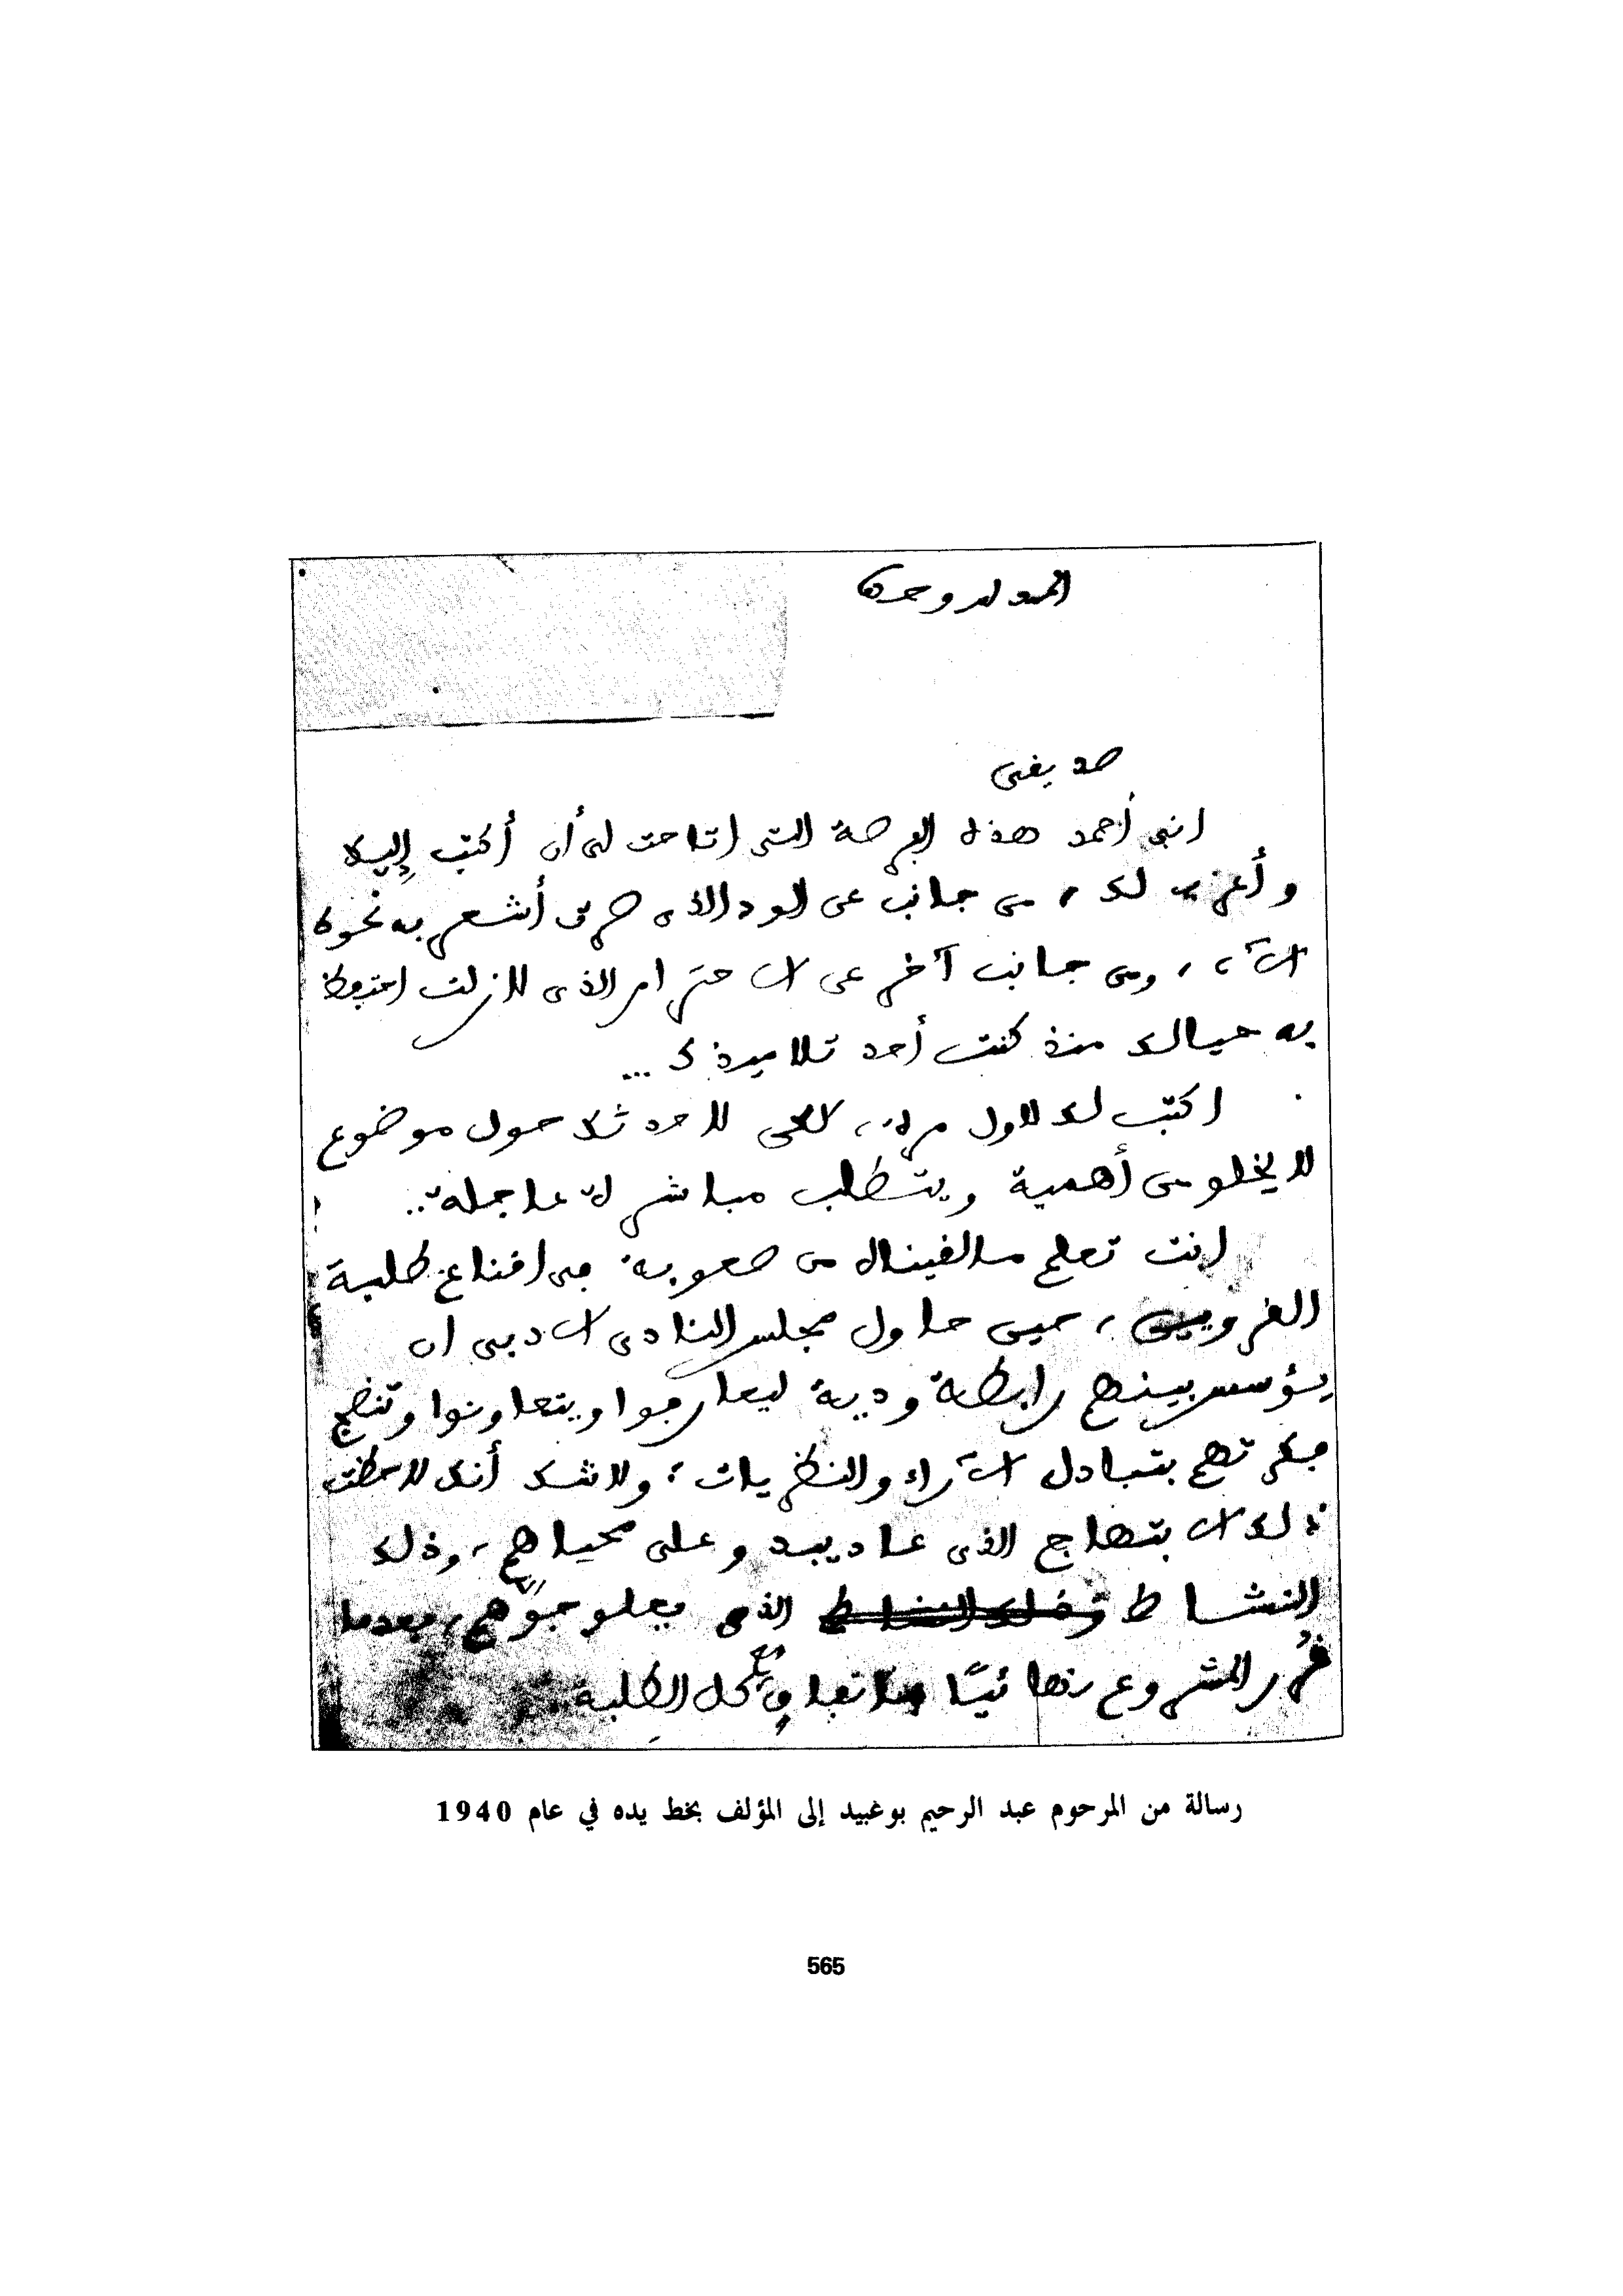 الحمد لله وحده
صديقي
اني أحمد هذه الفرصة التي اتاحت لي أن أكتب إليك
وأعرب لك، من جانب عن الود الذي صرت أشعر به نحوك
الآن، ومن جانب آخر عن الاحترام الذي لازلت احتفظ
به حيالك منذ كنت أحد تلاميذك ...
اكتب لك لأول مرة، لكي لأحدثك حول موضوع
لا يخلو من أهمية ويتطلب مباشرة عاجلة..
انت تعلم ما لقيناه من صعوبة في اقناع طلبة
القرويين، حين حاول مجلس النادي الادبي ان
يؤسس بينهم رابطة ودية ليتعارفوا ويتعاونوا وتنضج
فكرتهم بتبادل الآراء والنظريات؛ ولا شك أنك لاحظت
ذلك الابتهاج الذي عاد يبدو على محياهم، وذلك
النشاط الذي يعلو جوهم، بعدما
قرر المشروع نهائيًا كل الطلبة
رسالة من المرحوم عبد الرحيم بوغبيد إلى المؤلف بخط يده في عام 1940
565